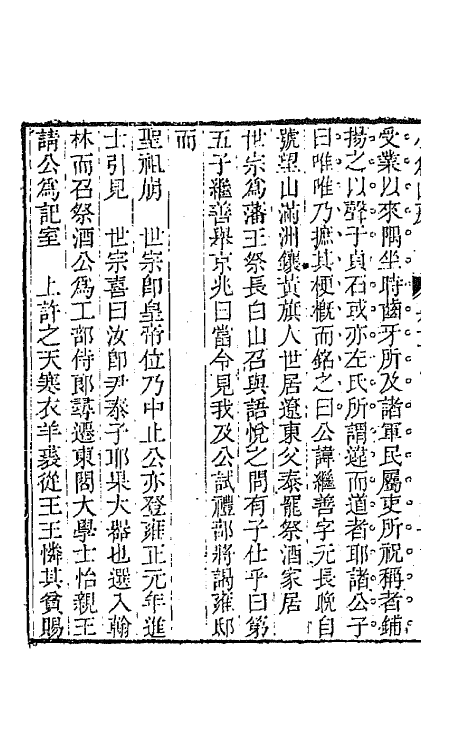 受業以來隅坐時齒牙所及諸軍民屬吏所祝稱者鋪
揚之以聲于貞石或亦左氏所謂違而道者耶諸公子
曰唯唯乃摭其梗槪而銘之曰公諱繼善字元長晚自
號望山滿洲鑲黃旗人世居遼東父泰罷祭酒家居
世宗爲藩王祭長白山召與語悅之問有子仕乎曰第
五子繼善舉京兆曰當令見我及公試禮部將謁雍邸
而
聖祖崩　世宗卽皇帝位乃中止公亦登雍正元年進
士引見　世宗喜曰汝卽尹泰子耶果大器也選入翰
林而召祭酒公爲工部侍郞尋遷東閣大學士怡親王
請公爲記室　上許之天寒衣羊裘從王王憐其貧賜